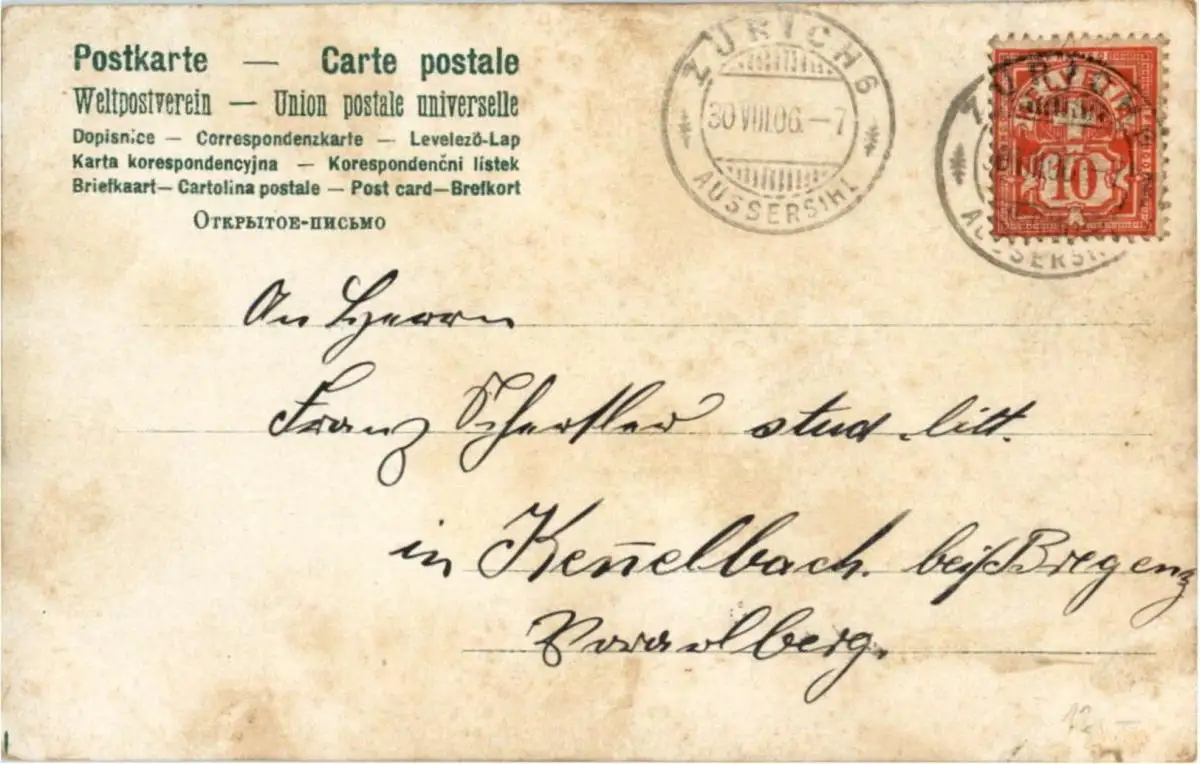 Postkarte — Carte postale
Weltpostverein — Union postale universelle
Dopisnice — Correspondenzkarte — Levelező-Lap
Karta korespondencyjna — Korespondenční lístek
Briefkaart — Cartolina postale — Post card — Brefkort
Открытое-письмо
ZÜRICH 6
30 VIII.06.–7
AUSSERSIHL
ZÜRICH
HELVETIA
10
AUSSERSI
An Herrn
Franz Schertler stud. litt.
in Ken̄elbach. bei Bregenz
Vorarlberg.
12.–